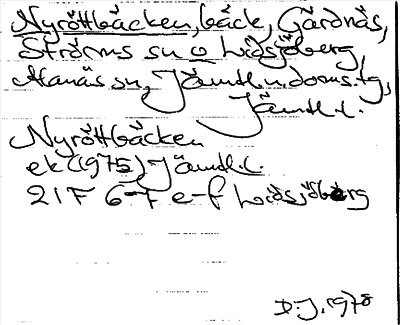 Nyröttbäcken, bäck, Gärdnäs,
Ströms sn o Lidsjöberg,
Alanäs sn, Jämtl. n. doms. tg,
Jämtl. l.
Nyröttbäcken
ek (1975) Jämtl. l.
21F 6-7 e-f Lidsjöberg
D. J. 1978